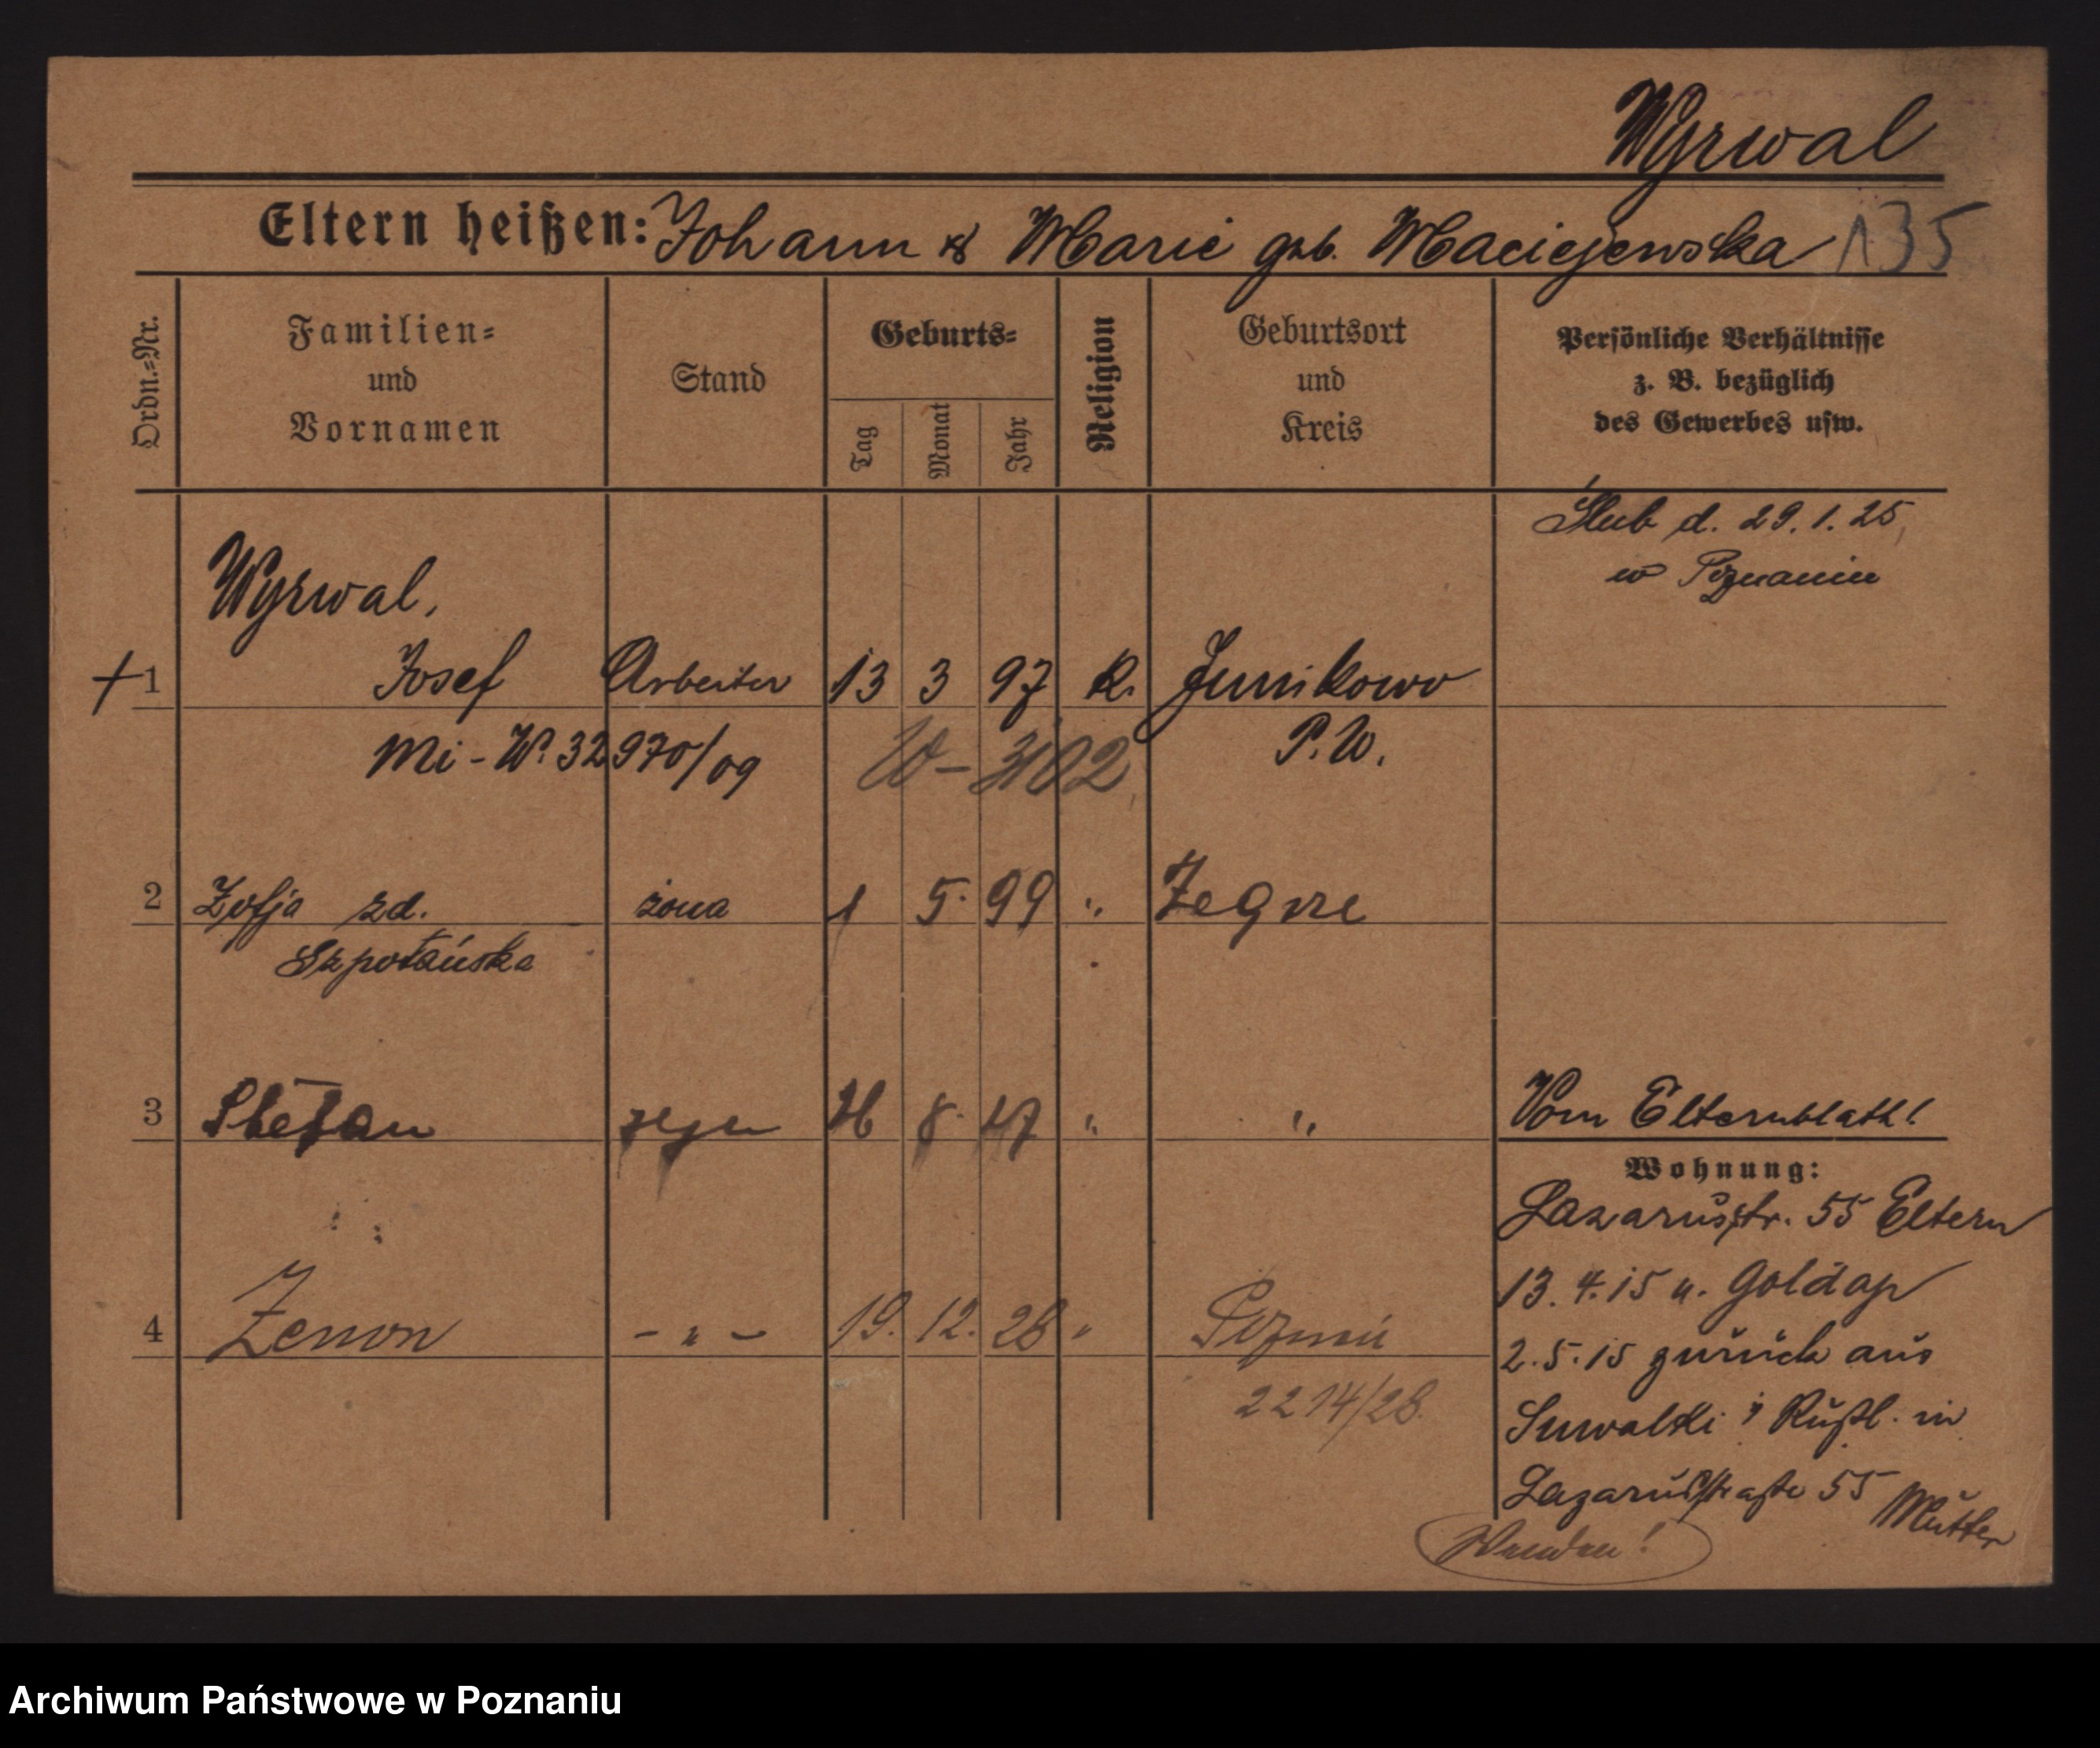 Wyrwal
Eltern heißen: Johann & Marie geb. Maciejewska 135
Ordn.-Nr.
Familien-
und
Vornamen
Stand
Geburts-
Tag
Monat
Jahr
Religion
Geburtsort
und
Kreis
Persönliche Verhältnisse
z. B. bezüglich
des Gewerbes usw.
Ślub d. 29.1.25
w Poznaniu
Wyrwal,
+ 1 Josef Arbeiter 13 3 97 K. Junikowo
Mi - W. 32970/09 W - 3102 P. W.
2 Zofja zd. żona 1 5. 99 " Zegrze
Szpotańska
3 Stefan 8. " "
Vom Elternblatt!
Wohnung:
Lazarusstr. 55 Eltern
13.4.15 n. Goldap
2.5.15 zurück aus
Suwalki i/ Rußl. in
Lazarusstraße 55 Mutter
4 Zenon - " - 19. 12. 28 " Poznań
2214/28.
Wenden!
Archiwum Państwowe w Poznaniu